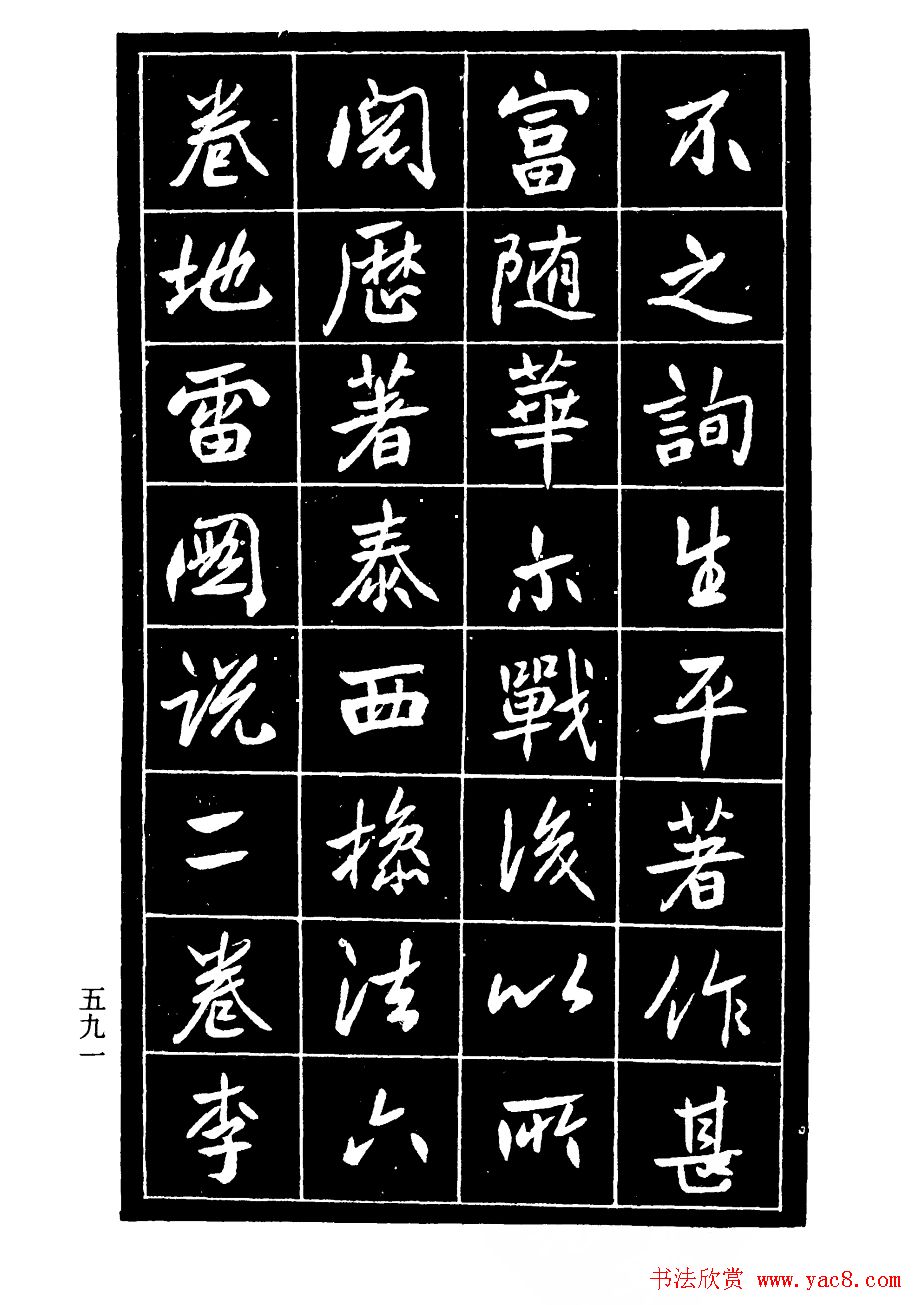 不之詢生平著作甚
富随華示戰後以所
閱歷著泰西操法六
卷地雷圖说二卷李
五九一
书法欣赏 www.yac8.com